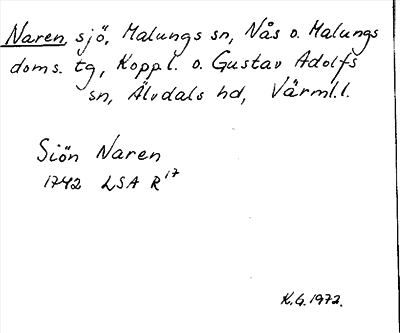 Naren, sjö, Malungs sn, Nås o. Malungs
doms. tg, Koppl. o. Gustav Adolfs
sn, Älvdals hd, Värml.l.
Siön Naren
1742 LSA R 17
K.G. 1972.